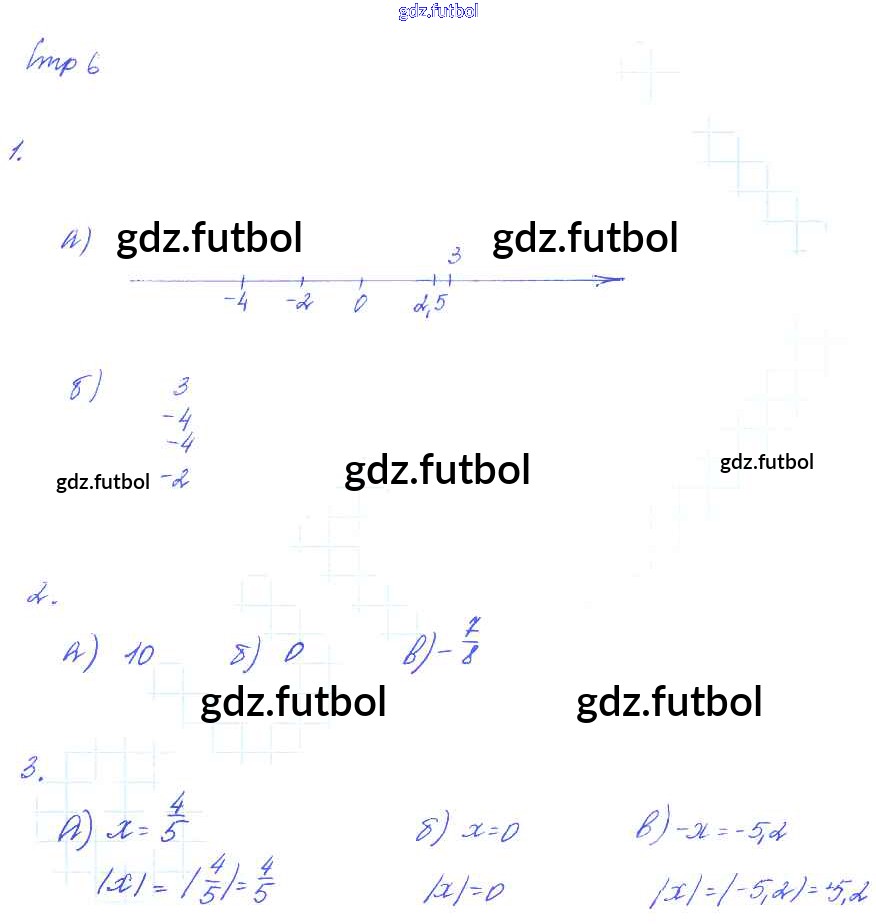 gdz.futbol
Стр 6
1.
а) gdz.futbol gdz.futbol
3
-4 -2 0 2,5
б) 3
-4
-4
gdz.futbol -2 gdz.futbol gdz.futbol
2.
а) 10 б) 0 в) -7/8
gdz.futbol gdz.futbol
3.
а) x = 4/5 б) x=0 в) -x = -5,2
|x| = |4/5| = 4/5 |x|=0 |x| = |-5,2| = +5,2